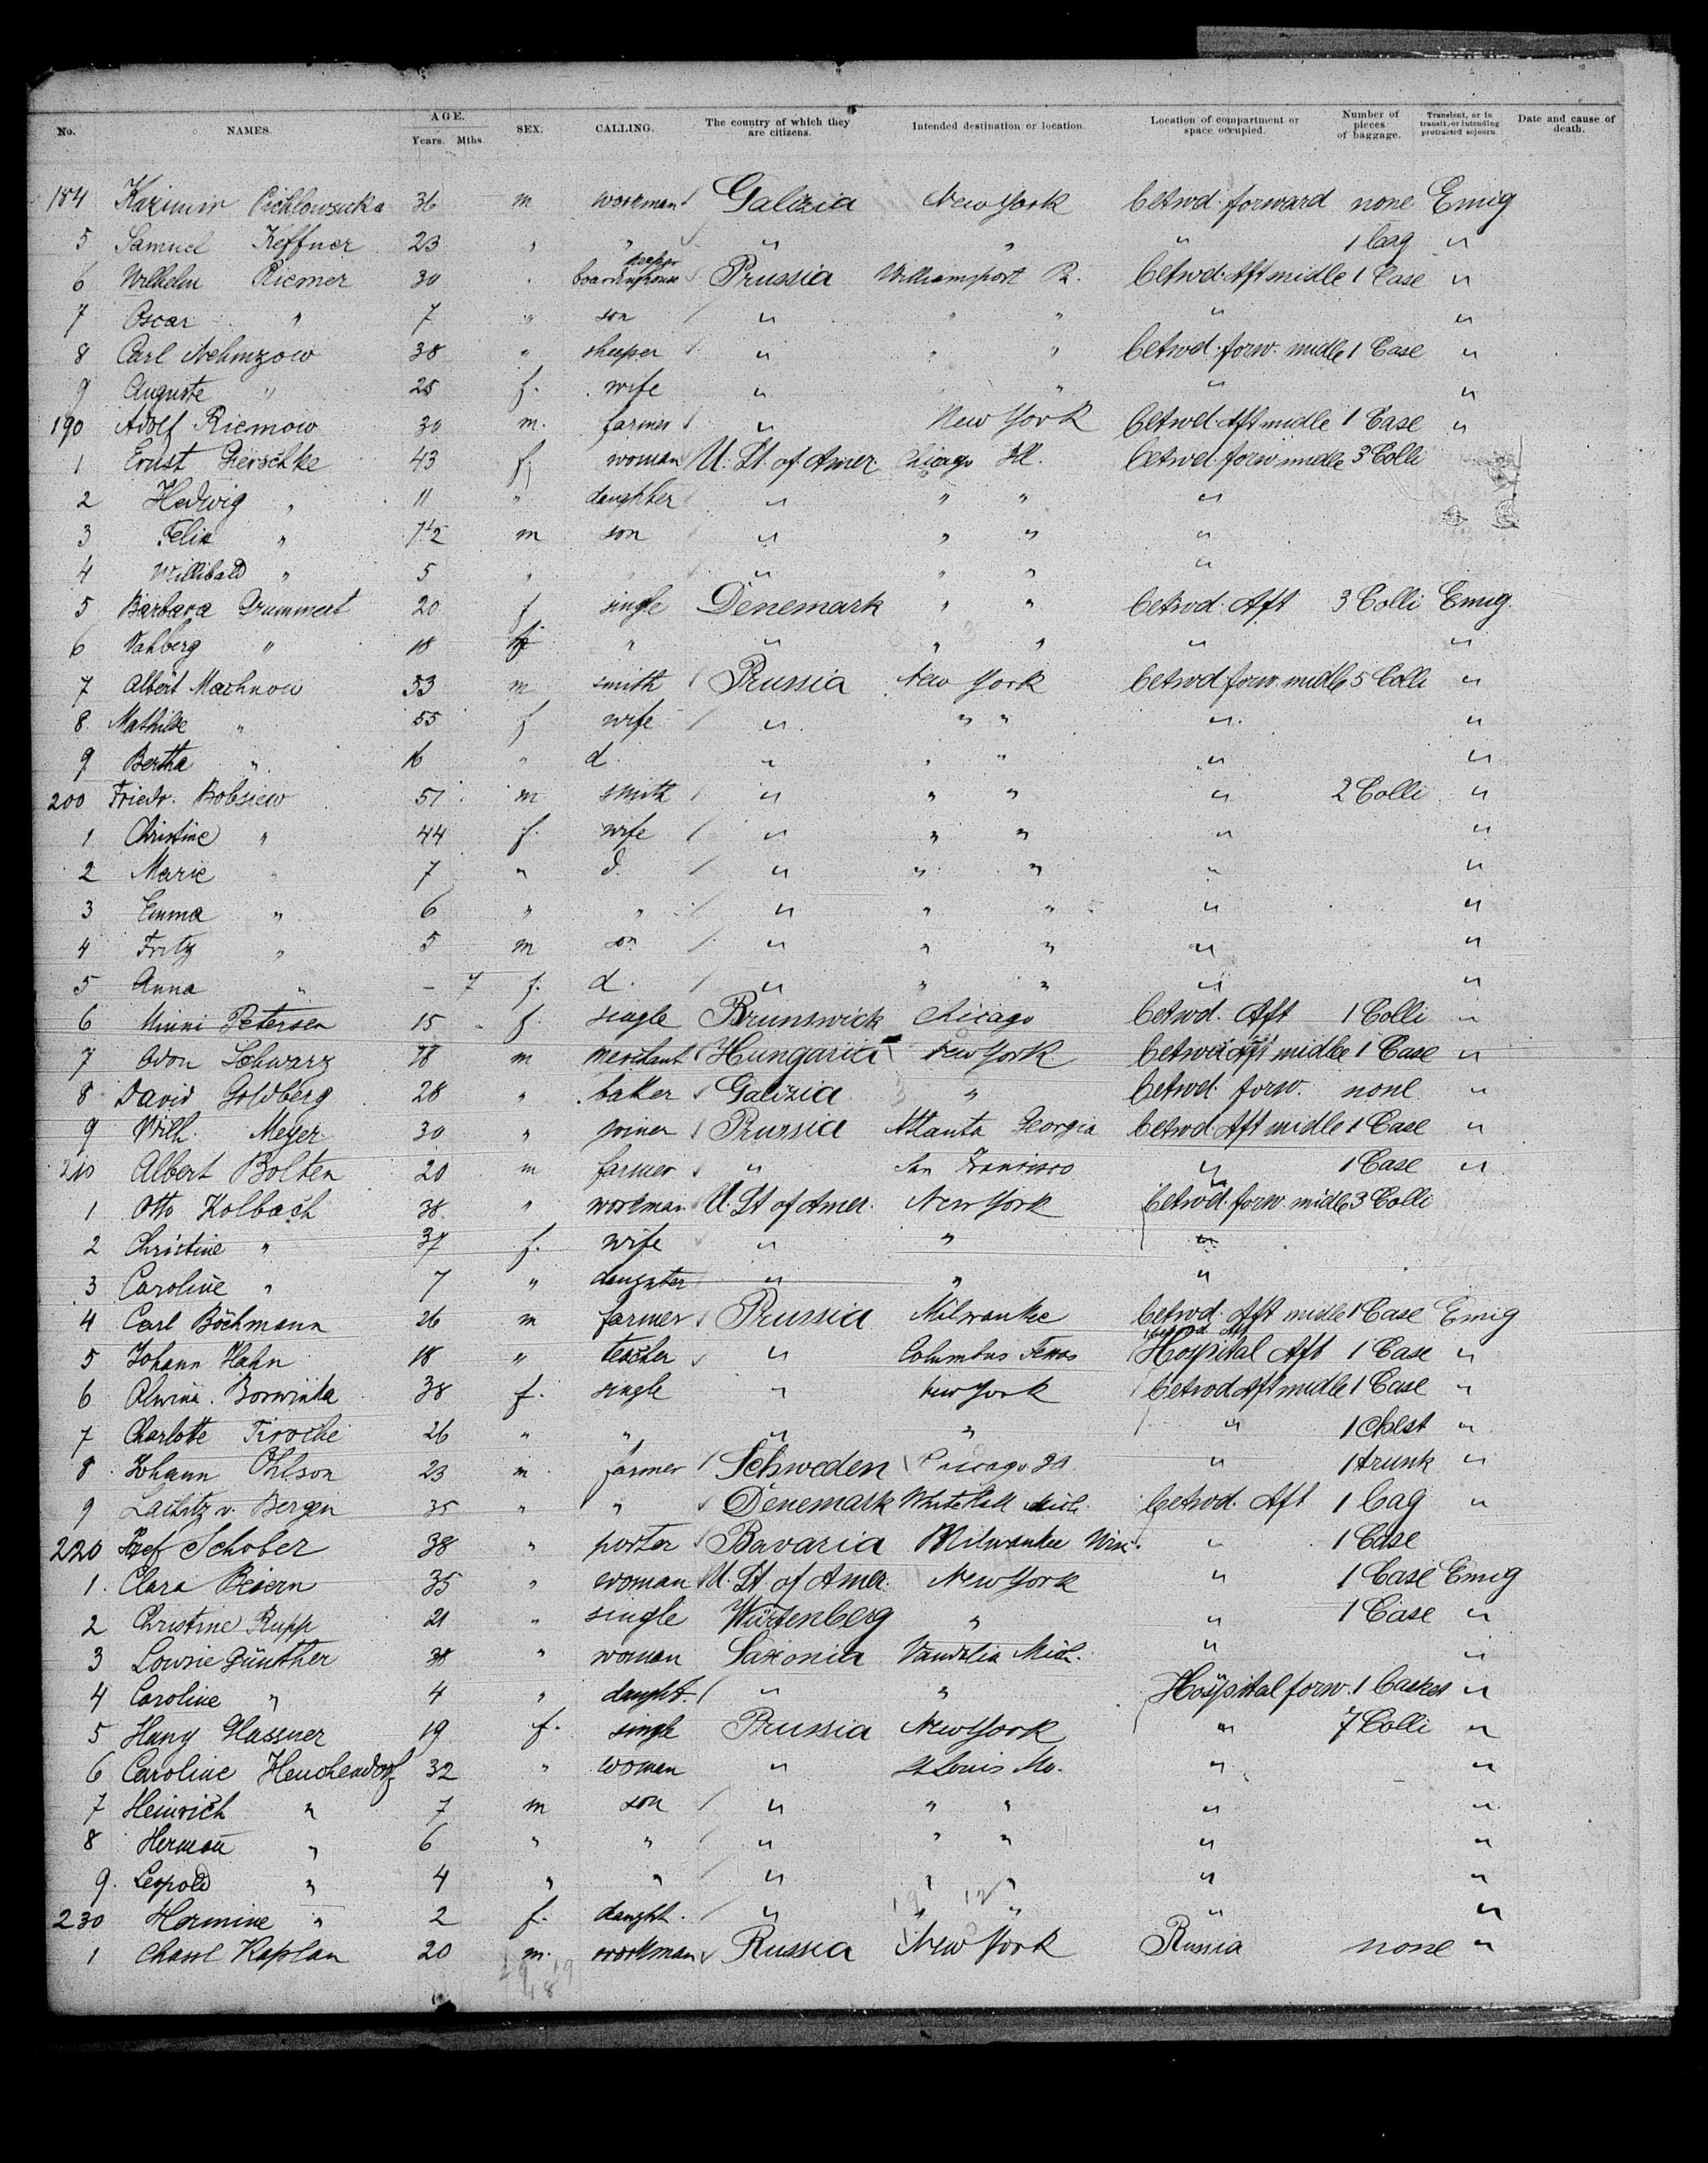 No. NAMES. AGE. Years. Mths. SEX. CALLING. The country of which they are citizens. Intended destination or location. Location of compartment or space occupied. Number of pieces of baggage. Transient, or in transit, or intending protracted sojourn. Date and cause of death.
184 Kazimir 36 m workman Galizia New York betwd. forward none Emig
5 Samuel Keffner 23 " " " " " 1 bag "
6 Wilhelm Riemer 30 " boardinghouse keeper Prussia Williamsport Pa. betwd. Aft midle 1 Case "
7 Oscar " 7 " son " " " " "
8 Carl Nehmzow 38 " " " " betwd. forw. midle 1 Case "
9 Auguste " 25 f. wife " " " "
190 Adolf Riemow 30 m. farmer " New York betwd. Aft midle 1 Case "
1 Ernst 43 f. woman U. St. of Amer. Chicago Ill. betwd. forw. midle 3 Colli
2 Hedwig " 11 " daughter " " " "
3 Felix " 7½ m son " " " "
4 Willibald " 5 " " " " " "
5 Barbara 20 f single Denemark " " betwd. Aft 3 Colli Emig.
6 " 18 f " " " " " "
7 Albert Machnow 53 m smith Prussia New York betwd. forw. midle 5 Colli "
8 Mathilde " 55 f wife " " " " "
9 Bertha " 16 " d. " " " " "
200 Friedr. Bobsiew 51 m smith " " " " 2 Colli "
1 Christine " 44 f. wife " " " " "
2 Marie " 7 " d. " " " " "
3 Emma " 6 " " " " " " "
4 Fritz " 5 m son " " " " "
5 Anna " – 7 f. d. " " " " "
6 Minni Petersen 15 f. single Brunswick Chicago betwd. Aft 1 Colli "
7 Schwarz 18 m merchant Hungaria New York betwd Aft midle 1 Case "
8 David Goldberg 28 " baker Galizia " betwd. forw. none "
9 Wilh. Meyer 30 " joiner Prussia Atlanta Georgia betwd. Aft midle 1 Case "
210 Albert Bolten 20 m farmer " San Francisco " 1 Case "
1 Otto Kolbach 38 " workman U. St of Amer. New York betwd. forw. midle 3 Colli
2 Christine " 37 f. wife " " "
3 Caroline " 7 " daughter " " "
4 Carl Böchmann 26 m farmer Prussia Milwaukee betwd. Aft midle 1 Case Emig
5 Johann Hahn 18 " teacher " Columbus Texas Hospital Aft 1 Case "
6 38 f. single " New York betwd Aft midle 1 Case "
7 Charlotte 26 " " " " " 1 Chest "
8 Johann Ohlson 23 m farmer Schweden Chicago " 1 trunk "
9 v. Bergen 35 " " Denemark White Hall Mich. betwd. Aft 1 bag "
220 Josef Schober 38 " porter Bavaria Milwaukee Wisc. " 1 Case
1. Clara 35 " woman U. St. of Amer. New York " 1 Case Emig
2 Christine Rupp 21 " single Würtenberg " " 1 Case "
3 Lowsie Günther 38 " woman Saxonia Vandalia Mich. " "
4 Caroline " 4 " daught. " " Hospital forw. 1 basket "
5 Glassner 19 f. single Prussia New York " 7 Colli "
6 Caroline Heuchendorf 32 " woman " St Louis Mo. " "
7 Heinrich " 7 m son " " " " "
8 Herman " 6 " " " " " " "
9. Leopold " 4 " " " " " " "
230 Hermine " 2 f. daught. " " " " "
1 Kaplan 20 m. workman Russia New York Russia none "